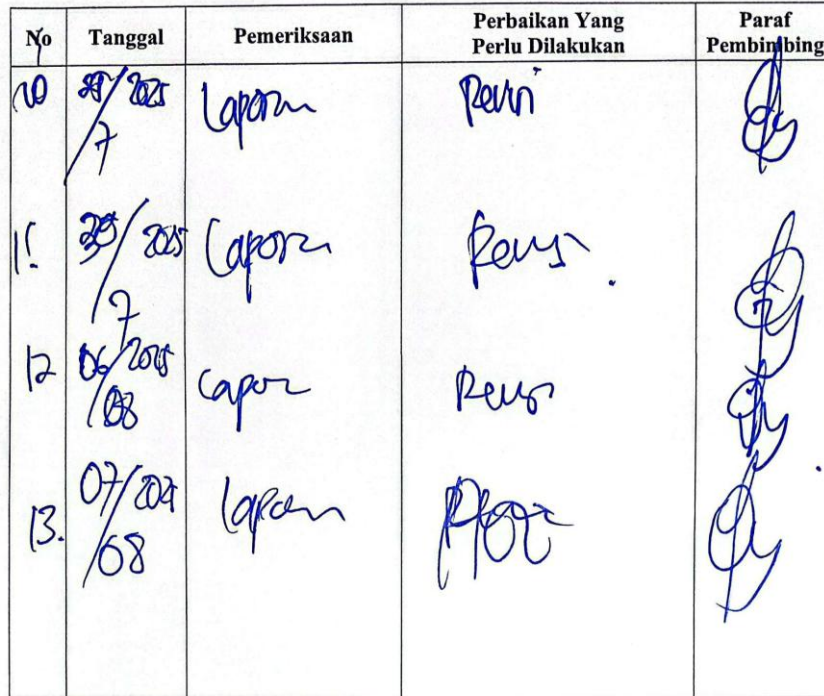 No Tanggal Pemeriksaan Perbaikan Yang Perlu Dilakukan Paraf Pembimbing
10 /2025 Laporan Revisi
/7
11. /2025 Laporan Revisi.
/7
12 06/2025 Lapor Revisi
/08
13. 07/2025 Laporan
/08